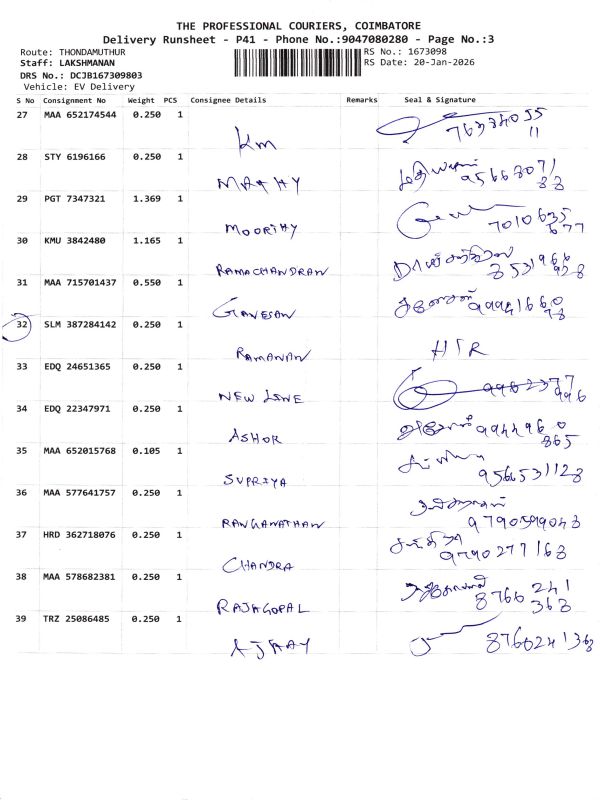 THE PROFESSIONAL COURIERS, COIMBATORE
Delivery Runsheet - P41 - Phone No.:9047080280 - Page No.:3
Route: THONDAMUTHUR
RS No.: 1673098
Staff: LAKSHMANAN
RS Date: 20-Jan-2026
DRS No.: DCJB167309803
Vehicle: EV Delivery
S No Consignment No Weight PCS Consignee Details Remarks Seal & Signature
27 MAA 652174544 0.250 1
Km
28 STY 6196166 0.250 1
MATHY
29 PGT 7347321 1.369 1
MOORTHY 7010635
677
30 KMU 3842480 1.165 1
RAMACHANDRAN 8531966
928
31 MAA 715701437 0.550 1
GANESAN கணேசன்
32 SLM 387284142 0.250 1
RAMANAN HTR
33 EDQ 24651365 0.250 1
NEW LINE
34 EDQ 22347971 0.250 1
ASHOK
35 MAA 652015768 0.105 1
SUPRIYA 9566531128
36 MAA 577641757 0.250 1
RANGANATHAN
37 HRD 362718076 0.250 1
CHANDRA 9790277168
38 MAA 578682381 0.250 1
RAJAGOPAL 8760241
368
39 TRZ 25086485 0.250 1
AJHAY 8760241368